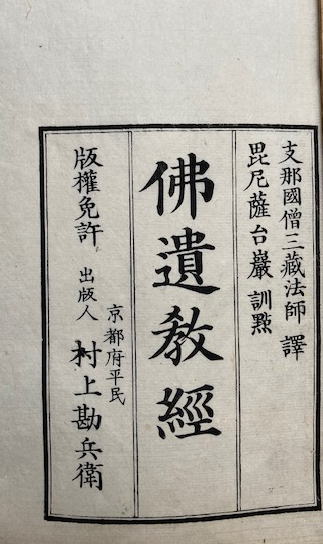 支那國僧三藏法師 譯
毘尼薩台巖 訓㸃
佛遺敎經
版權免許
京都府平民
出版人 村上勘兵衛